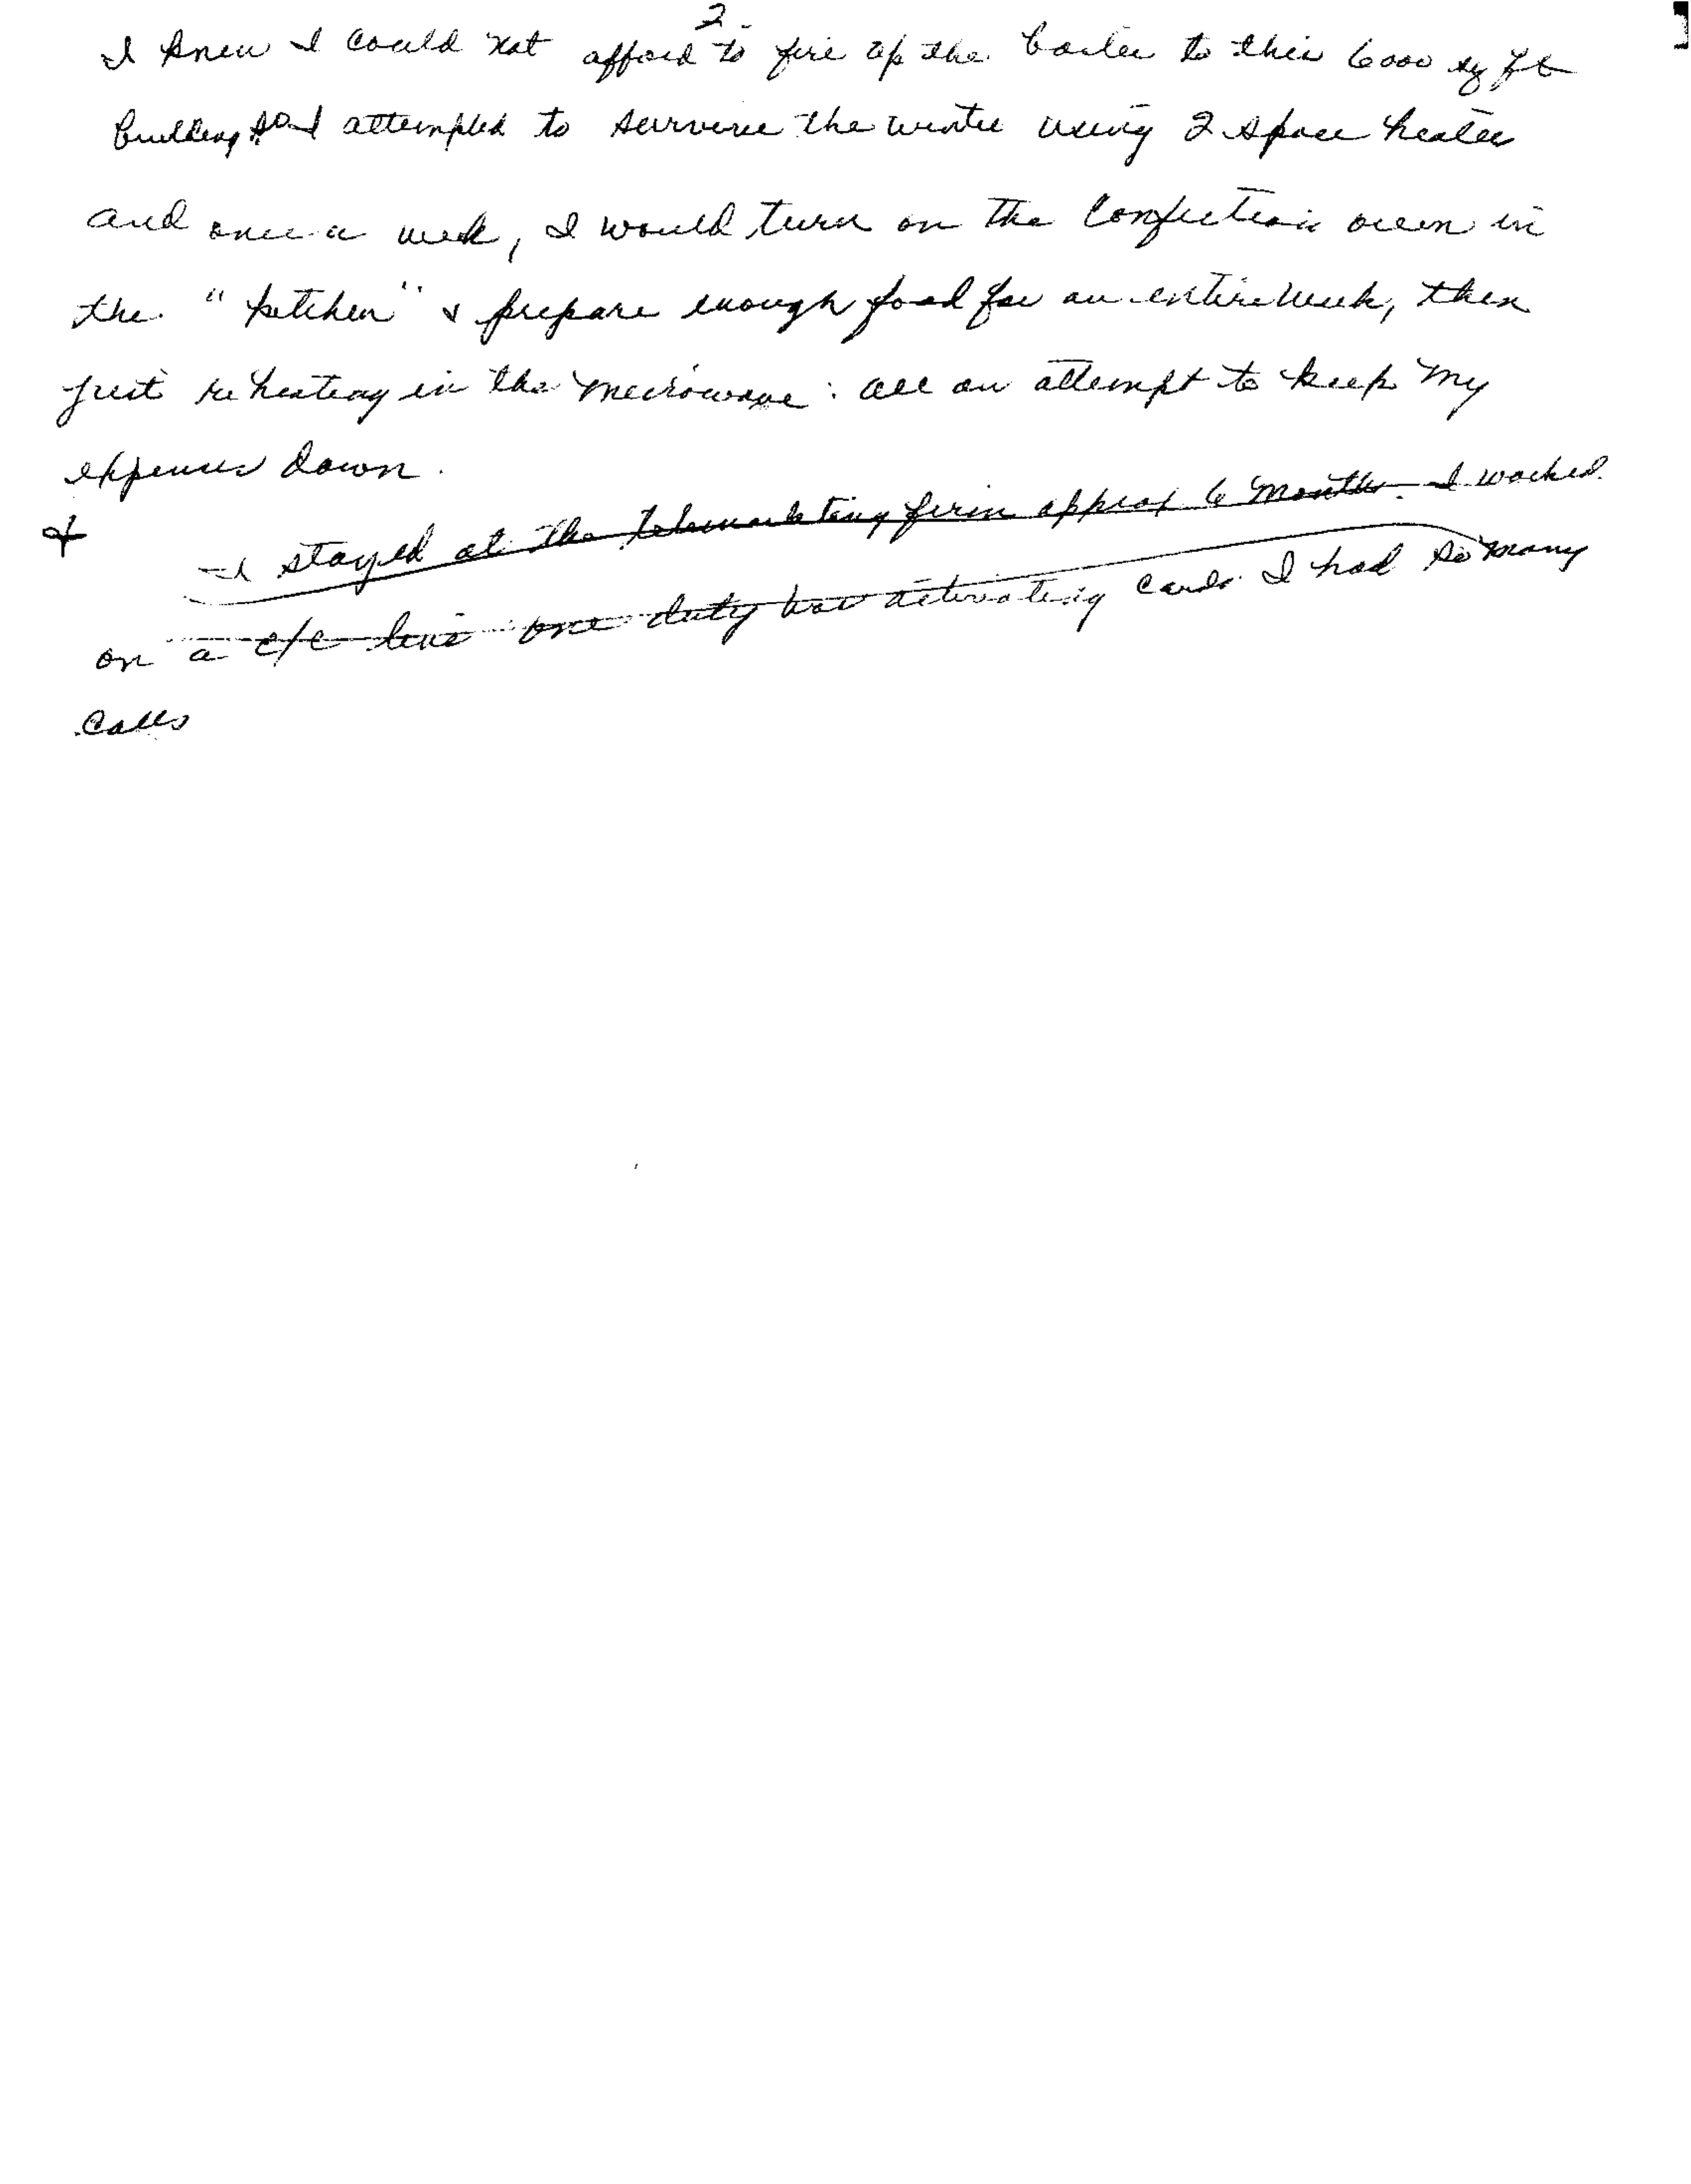 2.
I knew I could not afford to fire up the boiler to this 6000 sq ft
building so I attempted to survive the winter using 2 space heaters
and once a week, I would turn on the confection oven in
the "kitchen" & prepare enough food for an entire week, then
just reheating in the microwave: all an attempt to keep my
expenses down.
I stayed at the telemarketing firm approx 6 months. I worked
on a c/c line one duty was activating cards. I had so many
calls